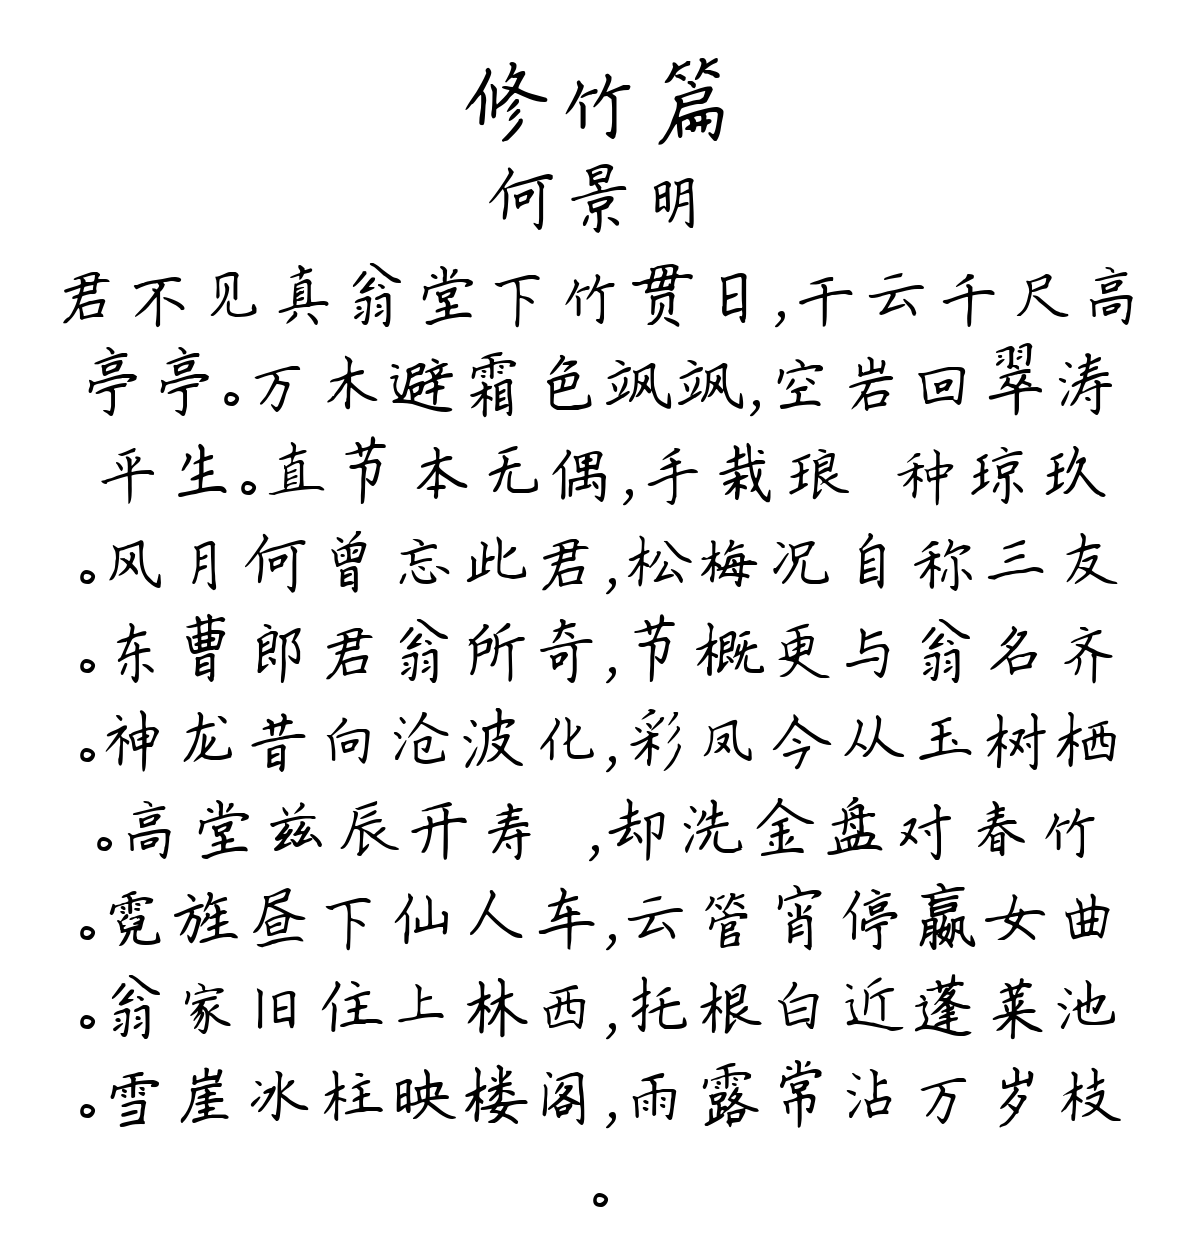 修竹篇
何景明
君不见真翁堂下竹贯日,干云千尺高
亭亭。万木避霜色飒飒,空岩回翠涛
平生。直节本无偶,手栽琅 种琼玖
。风月何曾忘此君,松梅况自称三友
。东曹郎君翁所奇,节概更与翁名齐
。神龙昔向沧波化,彩凤今从玉树栖
。高堂兹辰开寿 ,却洗金盘对春竹
。霓旌昼下仙人车,云管宵停嬴女曲
。翁家旧住上林西,托根白近蓬莱池
。雪崖冰柱映楼阁,雨露常沾万岁枝
。